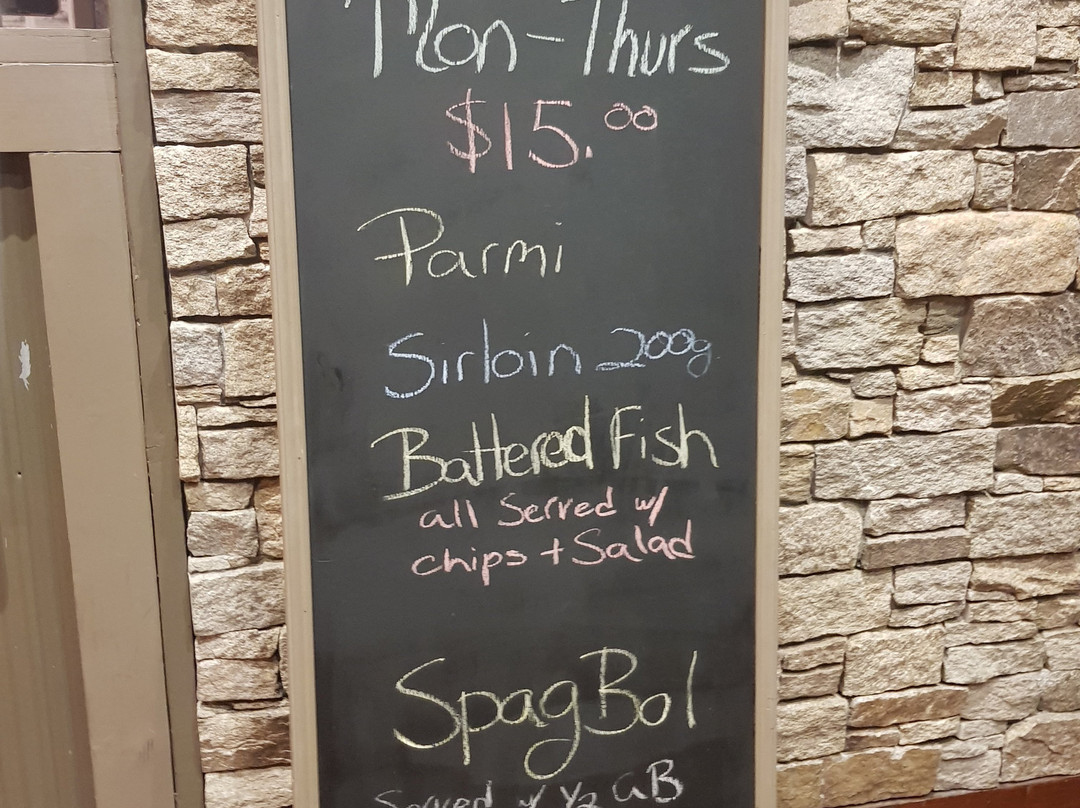 Mon-Thurs
$15.00
Parmi
Sirloin 200g
Battered Fish
all Served w/
chips + Salad
Spag Bol
Served w/ 1/2 GB